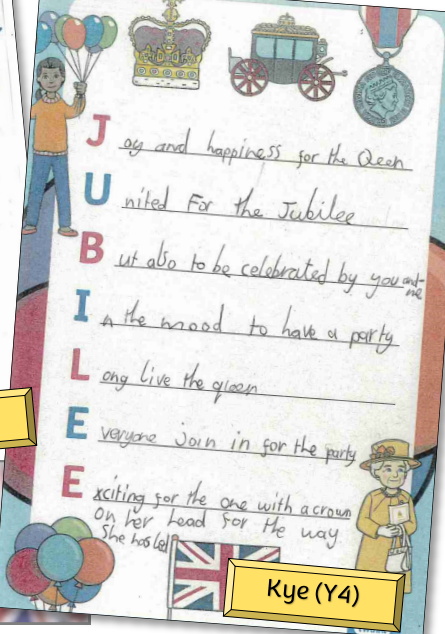 Joy and happiness for the Qeen
United For the Jubilee
But also to be celebrated by you and
me
In the mood to have a party
Long live the qieen
Everyone join in for the party
Exciting for the one with a crown
on her head for the way
She has led
Kye (Y4)